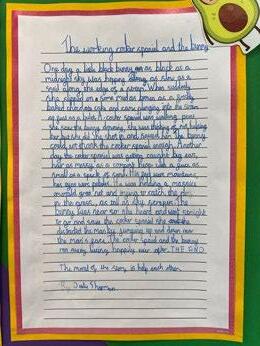 The working cocker spaniel and the bunny
One day a little black bunny as black as a
midnight sky was hopping along as slow as a
snail along the edge of a stream. When suddenly
she slipped on some mud as brown as a freshly
baked chocolate cake and came plunging into the stream
as fast as a bullet. A cocker spaniel was walking past
she saw the bunny drowning, she was thinking of not helping
her but she did. She dived in and saved him. The bunny
could not thank the cocker spaniel enough. Another
day the cocker spaniel was getting caught by a man
hair as messy as a and a face as
small as a speck of sand. His was mountains,
his eyes were pebbles. He was holding a massive
emerald green net and trying to catch the dog
in the grass, as tall as sky scraper. The
bunny lives near so she heard and went straight
to go and save the cocker spaniel she
distracted the man by jumping up and down near
the man's face. The cocker spaniel and the bunny
ran away living happily ever after. THE END
The moral of the story is help each other.
By